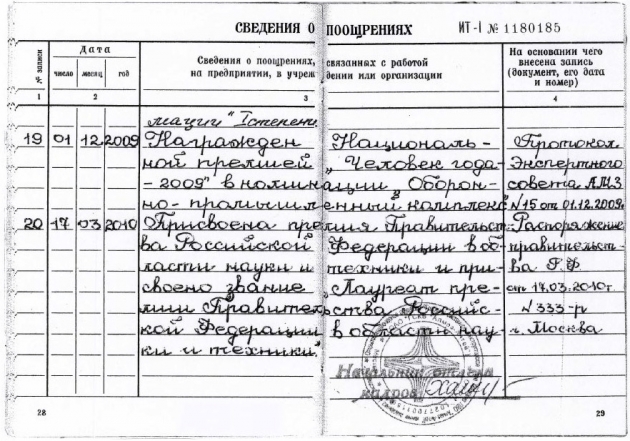 СВЕДЕНИЯ О ПООЩРЕНИЯХ ИТ-I № 1180185
№ записи
Дата
число месяц год
Сведения о поощрениях, связанных с работой
на предприятии, в учреждении или организации
На основании чего
внесена запись
(документ, его дата
и номер)
1 2 3 4
мации" I степени.
19 01 12.2009 Награжден Националь- Протокол
ной премией „Человек года- Экспертного
- 2009" в номинации „Оборон- совета АМЗ
но-промышленный комплекс" №15 от 01.12.2009г.
20 17 03 2010 Присвоена премия Правительст- Распоряжение
ва Российской Федерации в об- правительст-
ласти науки и техники и при- ва Р.Ф
своено звание „Лауреат пре- от 17.03.2010г.
мии Правительства Российс- №333-р
кой Федерации в области нау- г. Москва
ки и техники".
Начальник отдела
кадров
28 29